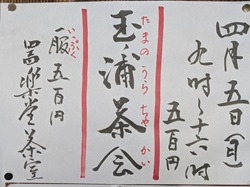 四月五日(日)
九時~十六時
五百円
玉ノ浦茶会
たまのうらちゃかい
一服 五百円
いっぷく
喜楽堂茶室